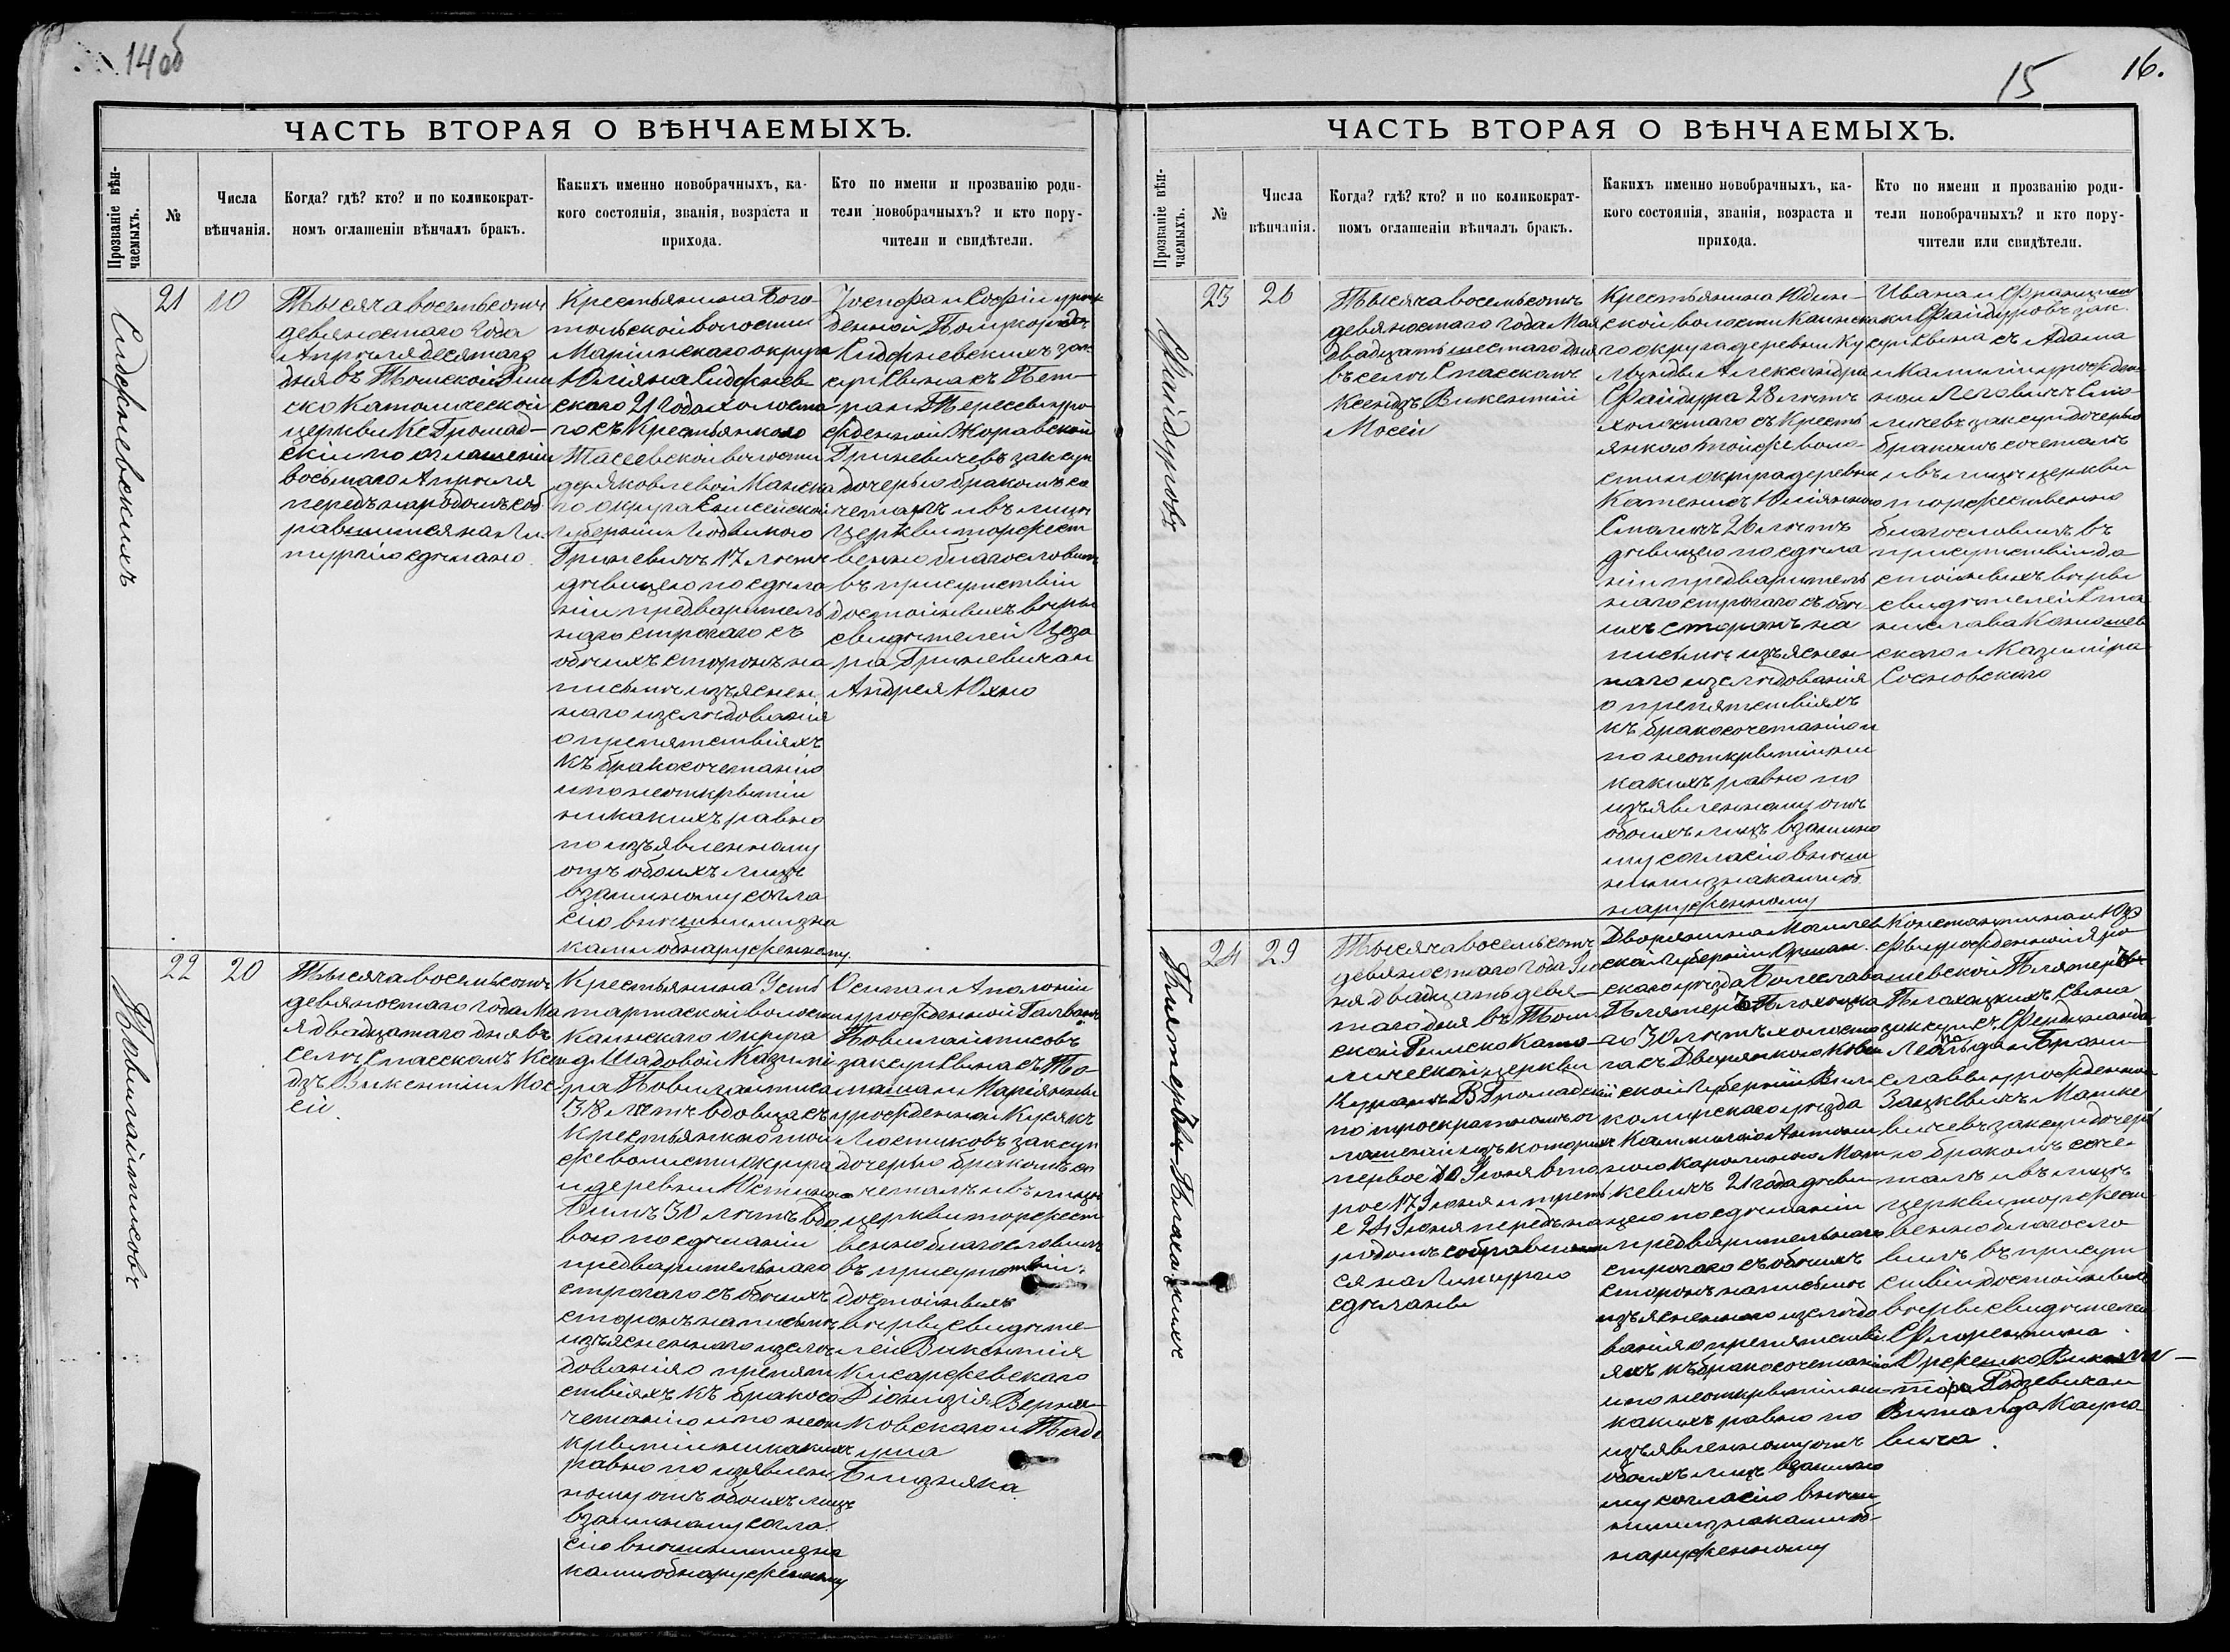 14 об
ЧАСТЬ ВТОРАЯ О ВѢНЧАЕМЫХЪ.
Прозваніе вѣн-
чаемыхъ.
№
Числа
вѣнчанія.
Когда? гдѣ? кто? и по коликократ-
номъ оглашеніи вѣнчалъ бракъ.
Какихъ именно новобрачныхъ, ка-
кого состоянія, званія, возраста и
прихода.
Кто по имени и прозванію роди-
тели новобрачныхъ? и кто пору-
чители и свидѣтели.
21
10
Тысяча восемьсотъ
девяностаго года
Апрѣля десятаго
дня въ Томской Рим
ско Католической
церкви Кс Громад-
скій по оглашеніи
восьмаго Апрѣля
передъ народомъ соб
равшимся на Ли
тургію сдѣлано.
Крестьянина Бого-
тольской волости
Маріинскаго округа
Юліяна Сиднев-
скаго 21 года холоста
го съ Крестьянкою
Тасеевской волости
дер Яковлевой Канска
го округа Енисейской
Губерніи Людвикою
Гриневичъ 17 лѣтъ
дѣвицею по сдѣла
ніи предваритель
наго строгаго съ
обоихъ сторонъ на
письмѣ изъяснен
наго изслѣдованія
о препятствіяхъ
къ бракосочетанію
и по неоткрытіи
никакихъ равно
по изъявленному
отъ обоихъ лицъ
взаимному согла
сію внѣшними зна
ками обнаруженному.
денной
зак
сун Сына съ Пет-
ра и
жденной Жоравской
Гриневичевъ закун
дочерью бракомъ со
четалъ и въ лицѣ
Церкви торжест
венно благословилъ
въ присутствіи
достойныхъ вѣры
свидѣтелей Цеза
ра Гриневича и
Андрея Юхно
22
20
Тысяча восемьсотъ
девяностаго года Ма
я двадцатаго дня въ
селѣ Спасскомъ Ксен
дзъ Викентій Мос-
сей.
Крестьянина Усть
тартаской волости
Каинскаго округа
д. Шадовой Казими
ра Повилайтиса
38 лѣтъ вдовца съ
Крестьянкою той
же волости округа
и деревни Юстиною
30 лѣтъ вдо
вою по сдѣланіи
предварительнаго
строгаго съ обоихъ
сторонъ на письмѣ
изъясненнаго изслѣ
дованія о препят
ствіяхъ къ бракосо
четанію и по неот
крытіи никакихъ
равно по изявлен
ному отъ обоихъ лицъ
взаимному согла
сію внѣшними зна
ками обнаруженному
Осипа и Аполоніи
урожденной
Повилайтисовъ
законн Сына съ То-
маша и Маріянны
урожденной
закун
дочерью бракомъ со
четалъ и въ лицѣ
церкви торжест
венно благословилъ
въ присутствіи
достойныхъ
вѣры свидѣте-
лей Викентія
Кисаржевскаго
Діонизія
ковскаго и Таде
уша
Близняка.
15
16.
ЧАСТЬ ВТОРАЯ О ВѢНЧАЕМЫХЪ.
Прозваніе вѣн-
чаемыхъ.
№
Числа
вѣнчанія.
Когда? гдѣ? кто? и по коликократ-
номъ оглашеніи вѣнчалъ бракъ.
Какихъ именно новобрачныхъ, ка-
кого состоянія, званія, возраста и
прихода.
Кто по имени и прозванію роди-
тели новобрачныхъ? и кто пору-
чители или свидѣтели.
23
26
Тысяча восемьсотъ
девяностаго года Мая
двадцать шестаго дня
въ селѣ Спасскомъ
Ксендзъ Викентій
Мосей
Крестьянина Юдин-
ской волости Каинска
го округа деревни Ку
Александра
Файдура 28 лѣтъ
холостаго съ Кресть
янкою той же воло-
сти и округа деревни
Юліянною
26 лѣтъ
дѣвицею по сдѣла
ніи предваритель
наго строгаго съ обо
ихъ сторонъ на
письмѣ изъяснен
наго изслѣдованія
о препятствіяхъ
къ бракосочетанію и
по неоткрытіи ни
какихъ равно по
изъявленному отъ
обоихъ лицъ взаимно
му согласію внѣш
ними знаками об
наруженному
Ивана и Францишки
Файдуровъ зак
сун Сына съ Адама
закун дочерью
бракомъ сочеталъ
и въ лицѣ церкви
торжественно
благословилъ въ
присутствіи до
стойныхъ вѣры
свидѣтелей Ста
нислава
скаго и Казиміра
Сосновскаго
24
29
Тысяча восемьсотъ
девяностаго года Ію
ня двадцать девя-
таго дня въ Том
ской Римско Като-
лической церкви
Куратъ В Громадскій
по троекратномъ ог
лашеніи изъ которыхъ
первое 10 Іюня вто
рое 17 Іюня и треть
е 24 Іюня передъ на
родомъ собравшим
ся на Литургію
сдѣланы
Дворянина Могилев
ской Губерніи Оршан
скаго уѣзда Болеслава
Плятеръ
го 30 лѣтъ холоста
го съ Дворянкою Ковен
ской Губерніи Вил
комирскаго уѣзда
Камиллою Антони
ною Каролиною Мац
кевичъ 21 года дѣви
цею по сдѣланіи
предварительнаго
строгаго съ обоихъ
сторонъ на письмѣ
изъясненнаго изслѣдо
ванія о препятстві
яхъ къ бракосочетанію
и по неоткрытіи ни
какихъ равно по
изъявленному отъ
обоихъ лицъ взаимно
му согласію внѣш
ними знаками об-
наруженному
Константина и Юзе
фы урожденной
Сына
закун съ Фердинанда
Леопольда и Брони
славы урожденной
Мацке
вичевъ закун дочерь
ю бракомъ соче
талъ и въ лицѣ
церкви торжест
венно благосло
вилъ въ присут
ствіи достойныхъ
вѣры свидѣтелей
Флорентина
Оржешко Вик
тора Радзевича и
Витольда Каупо
вича.